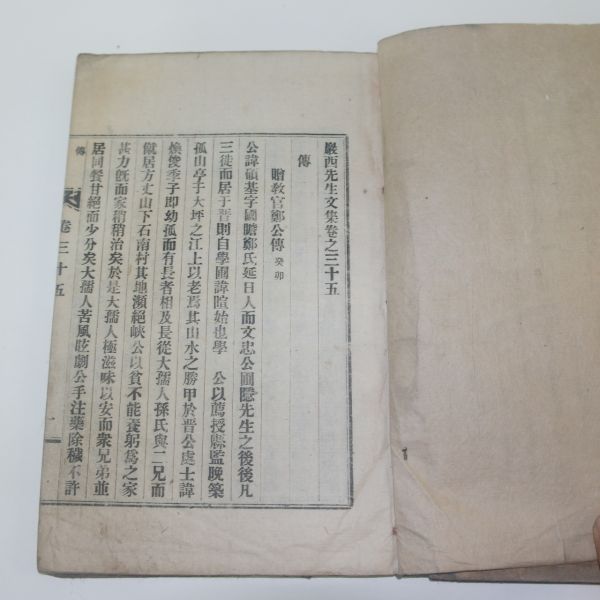 巖西先生文集卷之三十五
傳
贈敎官鄭公傳 癸卯
公諱碩基字國瞻鄭氏延日人而文忠公圃隱先生之後後凡
三徙而居于晋則自學圃諱暄始也學 公以薦授縣監晚築
孤山亭于大坪之江上以老焉其山水之勝甲於晋公處士諱
煥俊季子即幼孤而有長者相及長從大孺人孫氏與二兄而
僦居方丈山下石南村其地瀕絕峽公以貧不能養躬爲之家
甚力旣而家稍稍治矣於是大孺人極滋味以安而衆兄弟並
居同餐甘絕而少分矣大孺人苦風眩劇公手注藥除穢不許
傳
卷三十五
一